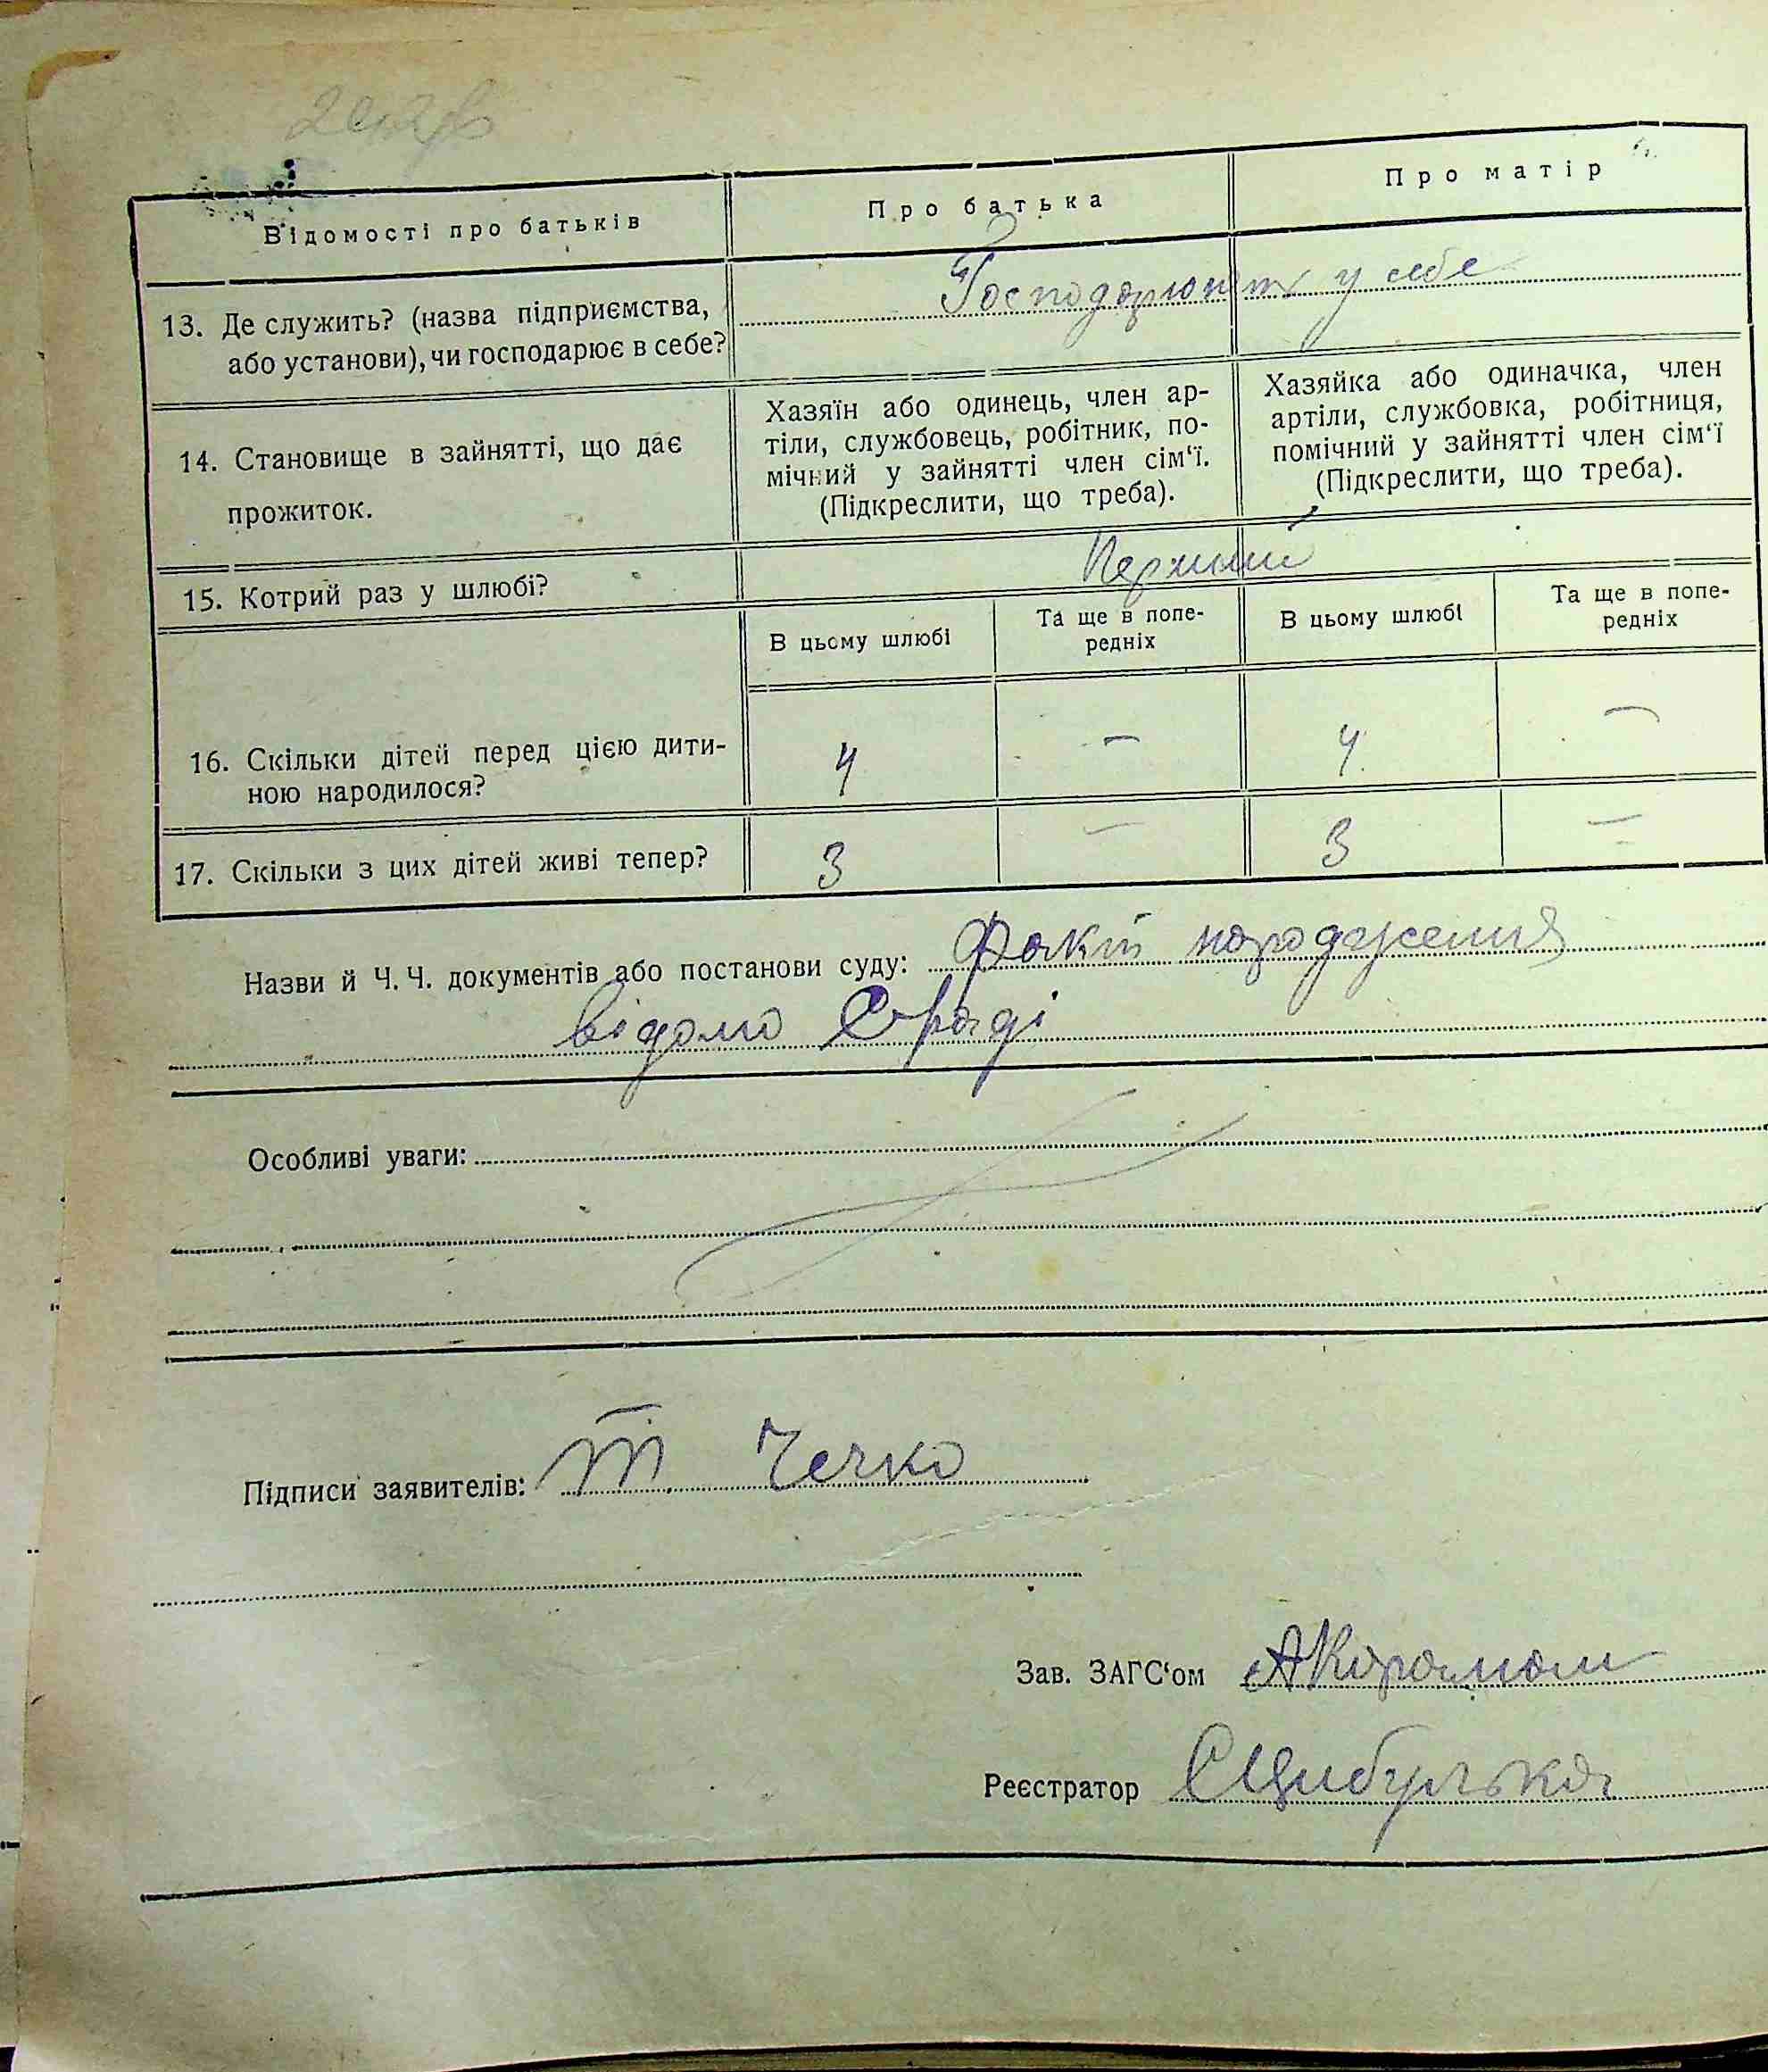 Відомості про батьків
Про батька
Про матір
13. Де служить? (назва підприємства,
або установи), чи господарює в себе?
Господарюють у себе
14. Становище в зайнятті, що дає
прожиток.
Хазяїн або одинець, член ар-
тіли, службовець, робітник, по-
мічний у зайнятті член сім'ї.
(Підкреслити, що треба).
Хазяйка або одиначка, член
артіли, службовка, робітниця,
помічний у зайнятті член сім'ї
(Підкреслити, що треба).
15. Котрий раз у шлюбі?
В цьому шлюбі
Та ще в попе-
редніх
В цьому шлюбі
Та ще в попе-
редніх
16. Скільки дітей перед цією дити-
ною народилося?
4 — 4 —
17. Скільки з цих дітей живі тепер?
3 — 3 —
Назви й Ч. Ч. документів або постанови суду: Факт народження
відомо С/раді
Особливі уваги:
Підписи заявителів: Т. Чечко
Зав. ЗАГС'ом
Реєстратор СЦибулька